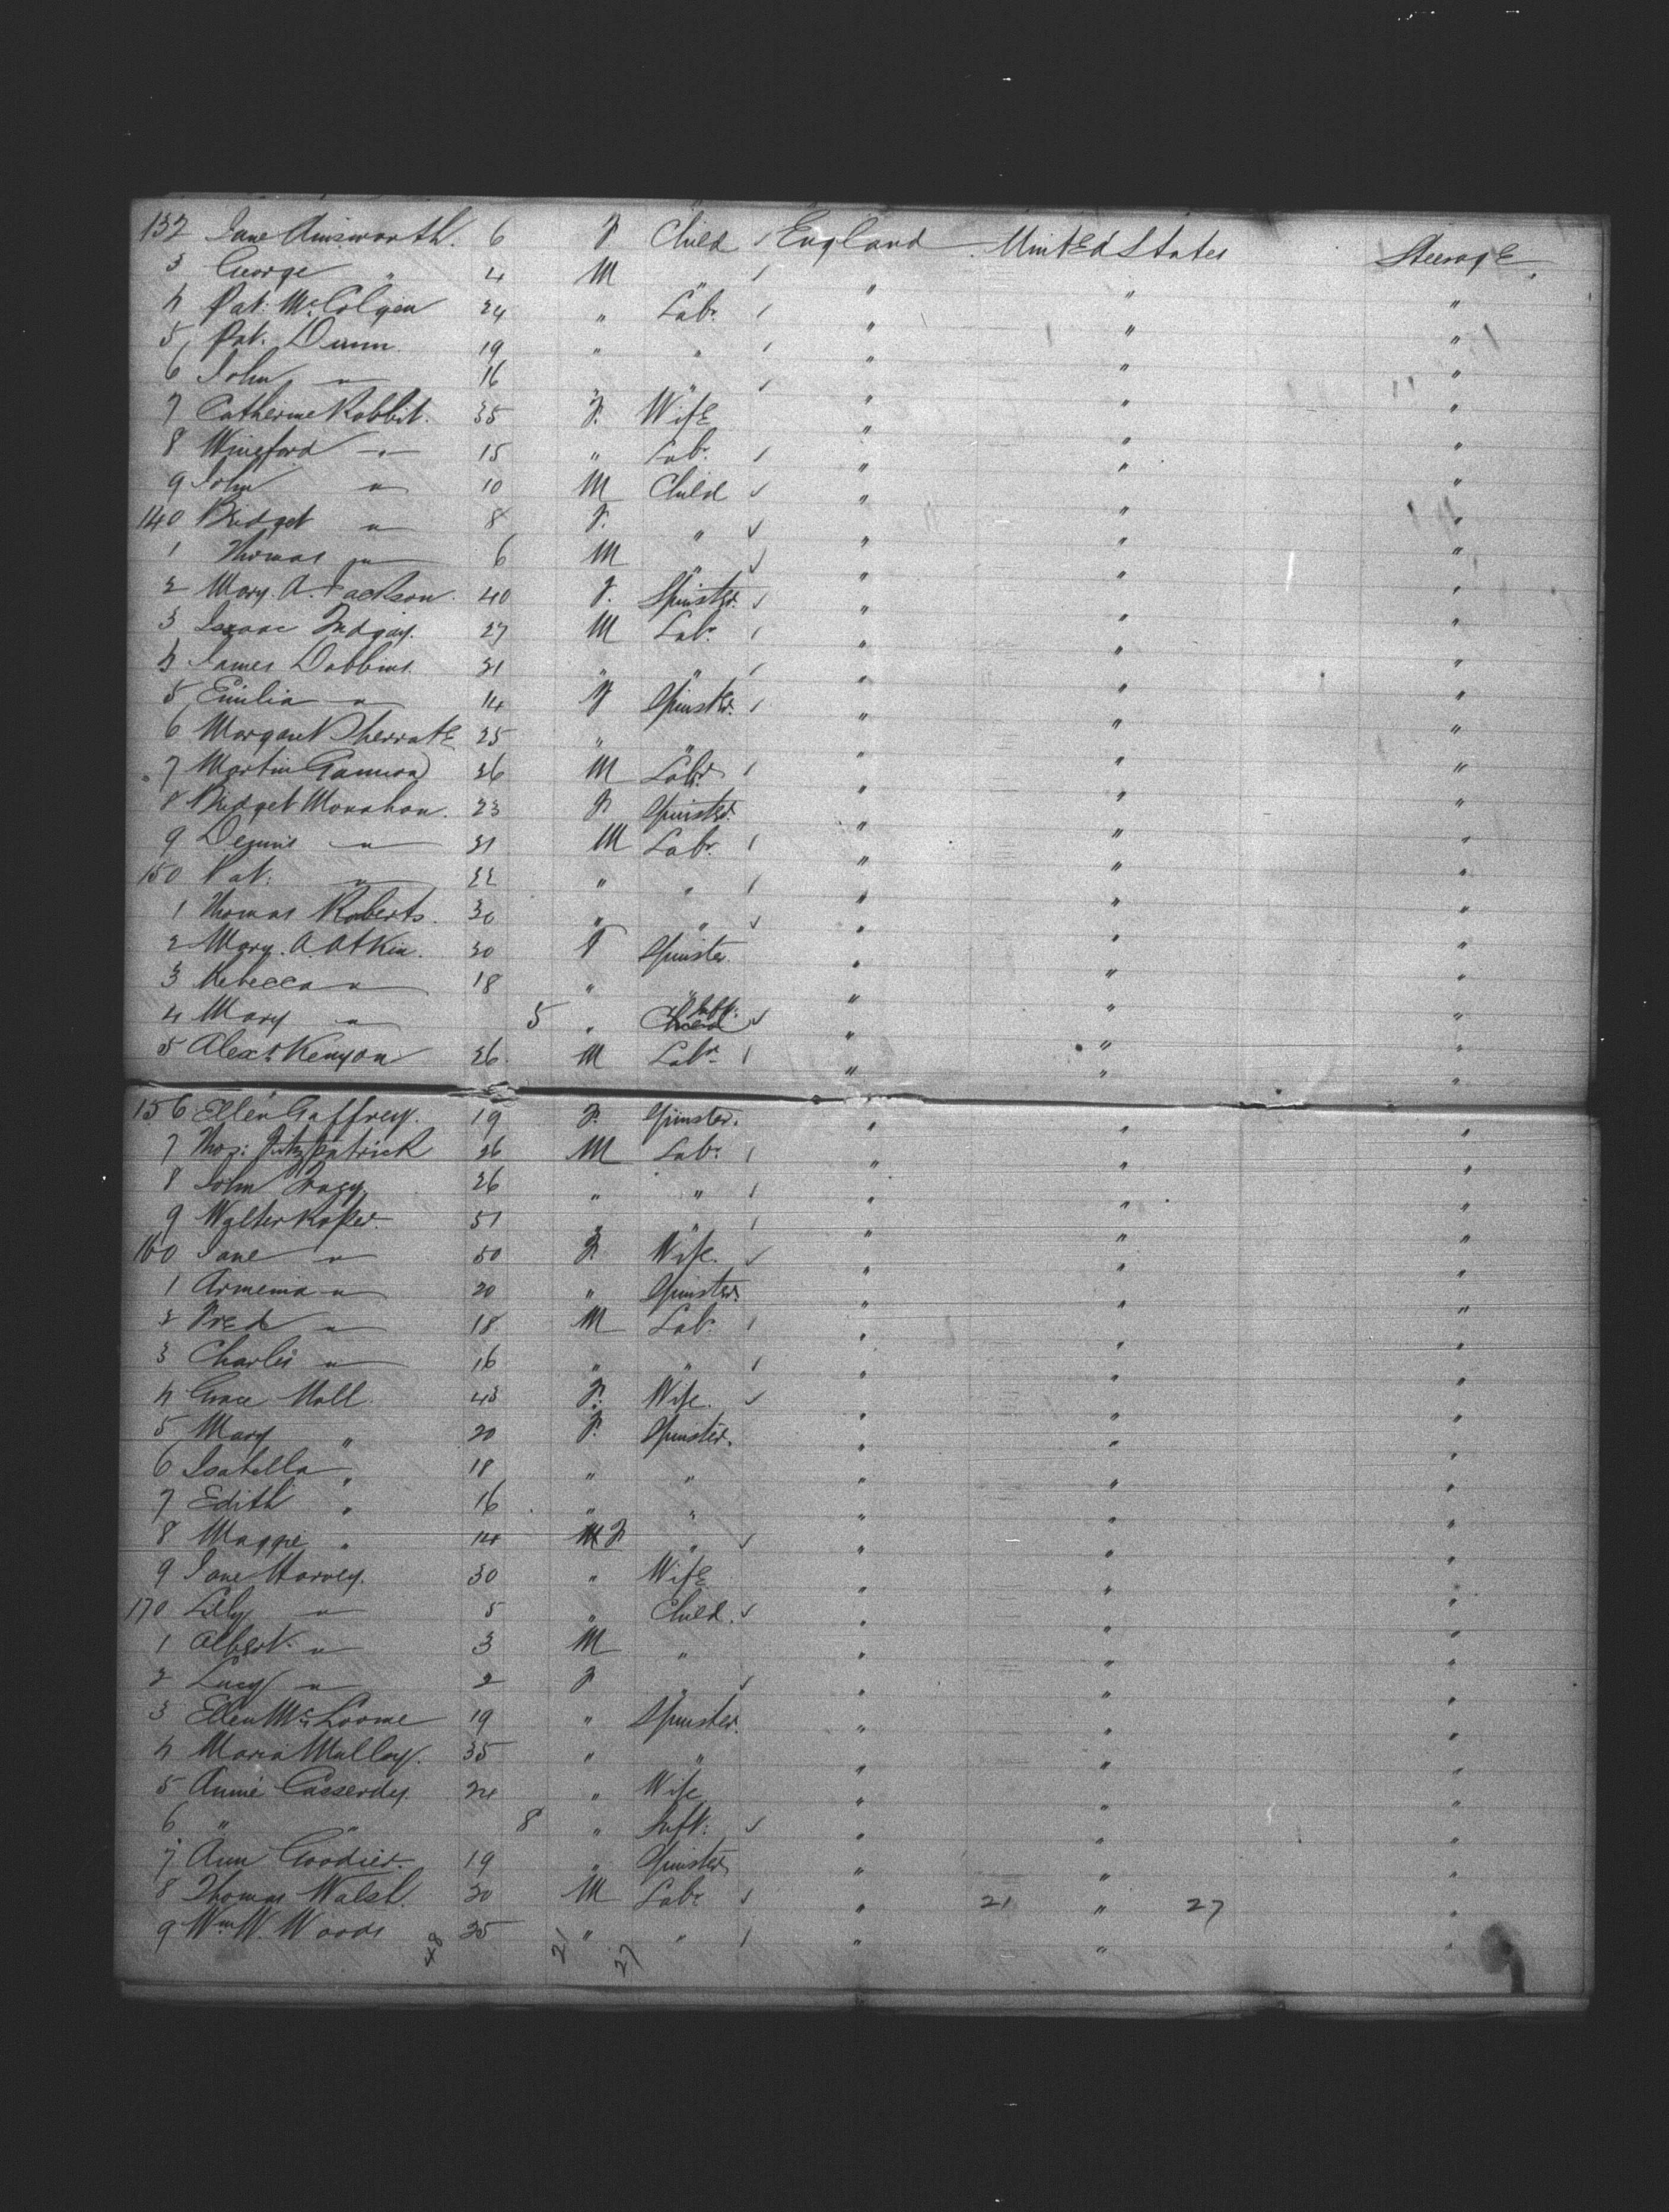 132 Jane Ainsworth. 6 F Child England United States Steerage
3 George " 4 M " " " "
4 Pat. McColgen 24 " Labr. " " "
5 Pat. Dunn. 19 " " " " "
6 John " 16 " " " "
7 Catherine Rabbit. 35 F. Wife " " "
8 Wineford " 15 " Labr. " " "
9 John " 10 M Child " " "
140 Bridget " 8 F. " " " "
1 Thomas " 6 M " " " "
2 Mary. A. Jackson. 40 F. Spinster. " " "
3 Isaac 27 M Labr. " " "
4 James Dobbins. 21 " " " " "
5 Emilia " 14 F Spinster. " " "
6 Margaret Sherrate 25 " " " " "
7 Martin 26 M Labr. " " "
8 Bridget Monahan. 23 F Spinster. " " "
9 Dennis " 21 M Labr. " " "
150 Pat. " 22 " " " " "
1 Thomas Roberts. 30 " " " " "
2 Mary. A. Atkin. 20 F Spinster " " "
3 Rebecca " 18 " " " " "
4 Mary " 5 " Child Inft. " " "
5 Alexr. Kenyon 26. M Labr. " " "
156 Ellen Gaffrey. 19 F. Spinster. " " "
7 Thos: Fitzpatrick 26 M Labr. " " "
8 John 26 " " " " "
9 Walter Roper. 51 " " " " "
160 Jane " 50 F. Wife. " " "
1 Armenia " 20 " Spinster. " " "
2 Fred " 18 M Labr. " " "
3 Charles " 16 " " " " "
4 Grace Hall 43 F. Wife. " " "
5 Mary " 20 F. Spinster. " " "
6 Isabella " 18 " " " " "
7 Edith " 16 " " " " "
8 Maggie " 14 M F " " " "
9 Jane Harvey. 30 " Wife " " "
170 Lilly " 5 " Child. " " "
1 Albert " 3 M " " " "
2 Lucy " 2 F " " " "
3 Ellen McLoome 19 " Spinster. " " "
4 Maria Mulloy. 35 " " " " "
5 Annie Casserdy. 24 " Wife " " "
6 " " 8 " Inft: " " "
7 Ann Goodier. 19 " Spinster " " "
8 Thomas Walsh. 30 M Labr. " 21 " 27 "
9 Wm. W. Woods 25 " " " " "
48 21 27